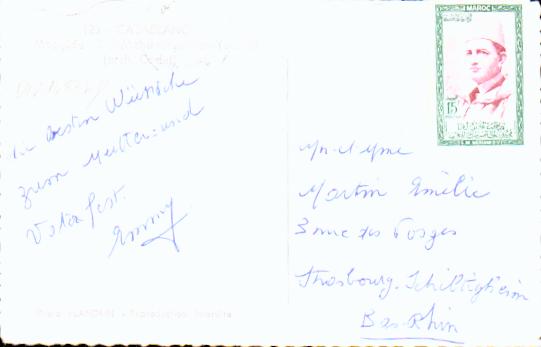 123 - CASABLANCA
Die besten Wünsche
zum Mutter= und
Vaterfest.
Emmy
MAROC
15
Mr. et Mme
Martin Emilie
3 rue des Forges
Strasbourg-Schiltigheim
Bas-Rhin
Photo FLANDRIN - Reproduction Interdite